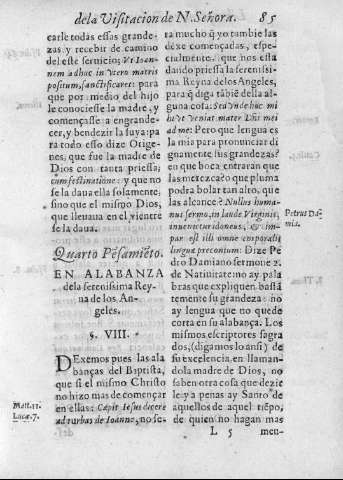 dela Visitacion de N. Señora. 85
carle todas essas grande-
zas, y recebir de camino
del este seruicio; Vt Ioan-
nem adhuc in vtero matris
positum, sanctificaret: para
que por medio del hijo
le conociesse la madre, y
començasse a engrande-
cer, y bendezir la suya: pa
ra todo esso dize Orige-
nes, que fue la madre de
Dios con tanta priessa;
cum festinatione: y que no
se la daua ella solamente,
sino que el mismo Dios,
que lleuaua en el vientre
se la daua.
Quarto Pẽsamiẽto.
EN ALABANZA
dela serenissima Rey-
na de los An-
geles.
§. VIII.
DExemos pues las ala
banças del Baptista,
que si el mismo Christo
no hizo mas de començar
en ellas: Cœpit Iesus dicere
ad turbas de Ioanne, no se-
Matt. 11.
Lucæ. 7.
ra mucho q̃ yo tambiẽ las
dexe començadas, espe-
cialmente, que nos esta
dando priessa la sereniss i
ma Reyna de los Angeles,
para q̃ diga tabiẽ della al-
guna cosa: Sed vnde huc mi
hi vt veniat mater Dñi mei
ad me: Pero que lengua es
la mia para pronunciar di
gnamente sus grandezas?
en que boca entraran que
las merezca? o que pluma
podra bolar tan alto, que
las alcance? Nullus huma-
nus sermo, in laude Virginis,
inuenitur idoneus, & im-
par est illi omne corporalis
linguæ preconium: Dize Pe
dro Damiano sermone 2.
de Natiuitate: no ay pala
bras que expliquen basta
temente su grandeza: no
ay lengua que no quede
corta en su alabança. Los
mismos escriptores sagra
dos, (digamos loansi) de
su excelencia, en llaman-
dola madre de Dios, no
saben otra cosa que dezir
le y a penas ay Santo de
aquellos de aquel tiẽpo,
de quien no hagan mas
Petrus Da-
mia.
L 5 men-